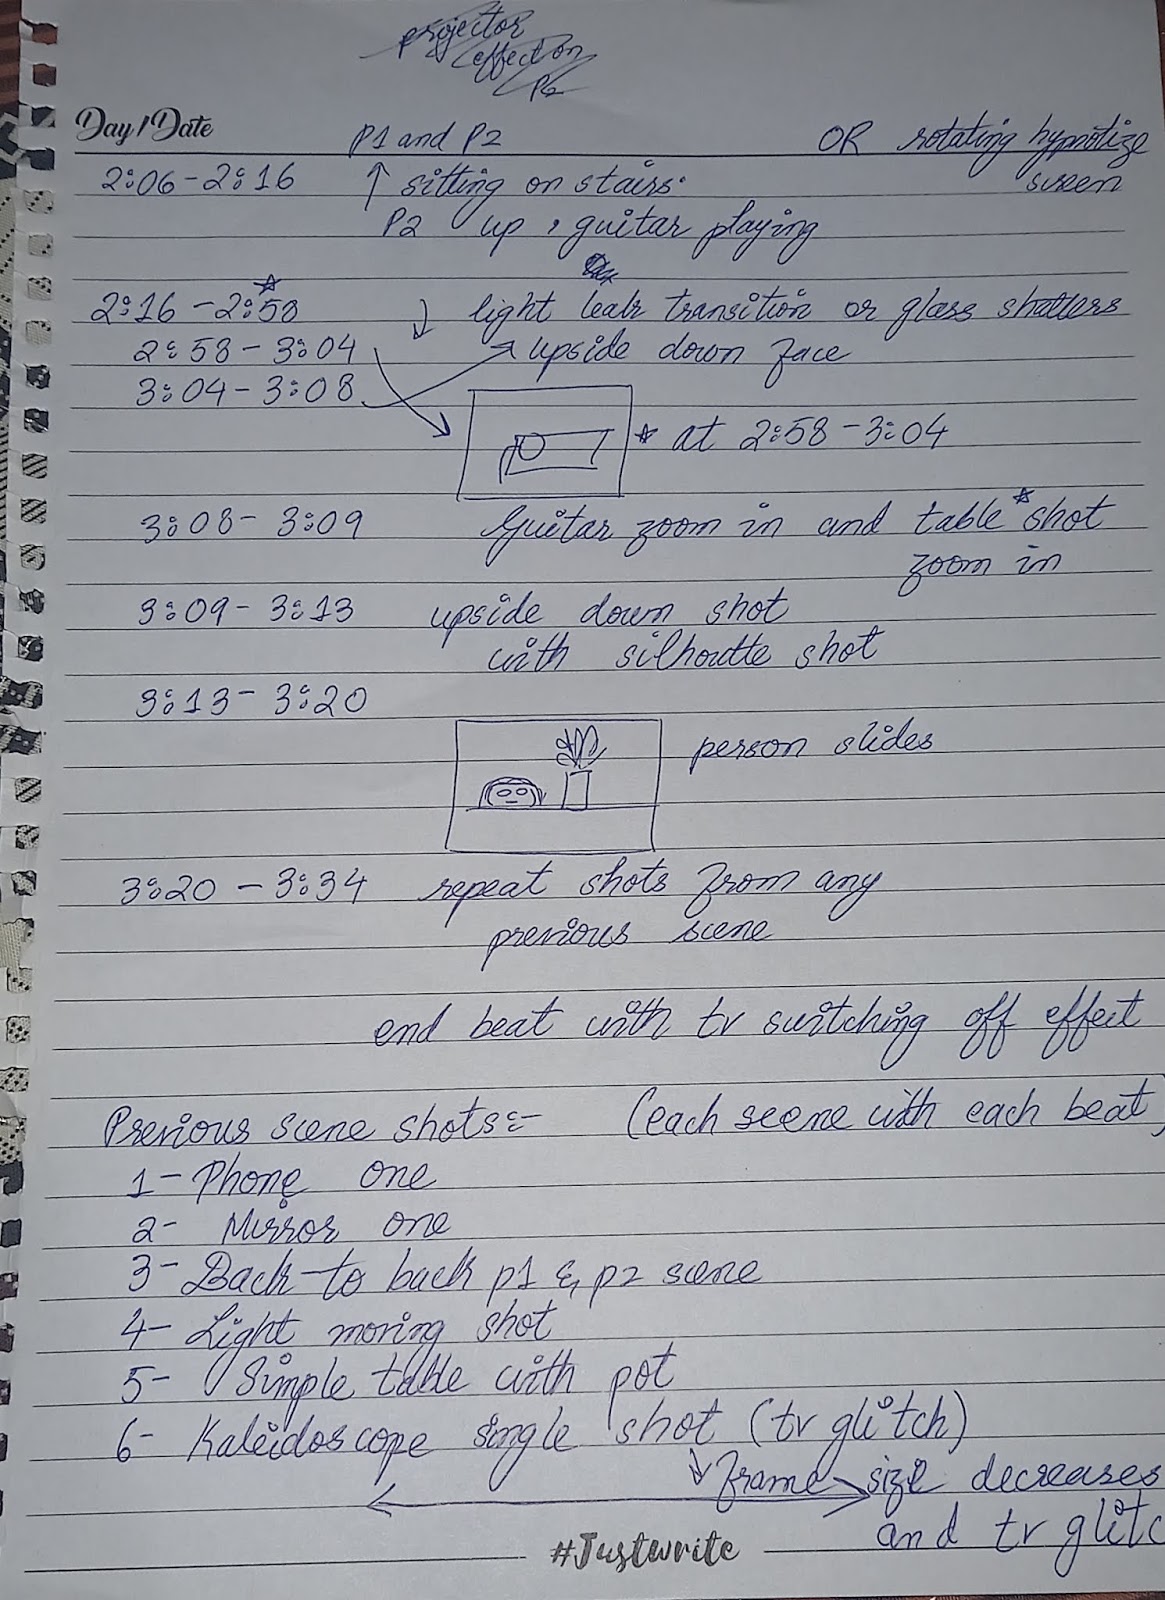 projector
effect on
P2
Day/Date
P1 and P2
OR rotating hypnotize
screen
2:06-2:16 ↑ sitting on stairs.
P2 up, guitar playing
2:16-2:58 ↓ light leak transition or glass shatters
2:58-3:04 → upside down face
3:04-3:08
* at 2:58-3:04
3:08-3:09 Guitar zoom in and table * shot
zoom in
3:09-3:13 upside down shot
with silhoutte shot
3:13-3:20
person slides
3:20-3:34 repeat shots from any
previous scene
end beat with tv switching off effect
Previous scene shots:- (each scene with each beat)
1- Phone one
2- Mirror one
3- Back to back p1 & p2 scene
4- Light moving shot
5- Simple table with pot
6- Kaleidoscope single shot (tv glitch)
↓ frame size decreases
and tv glitc
#Justwrite